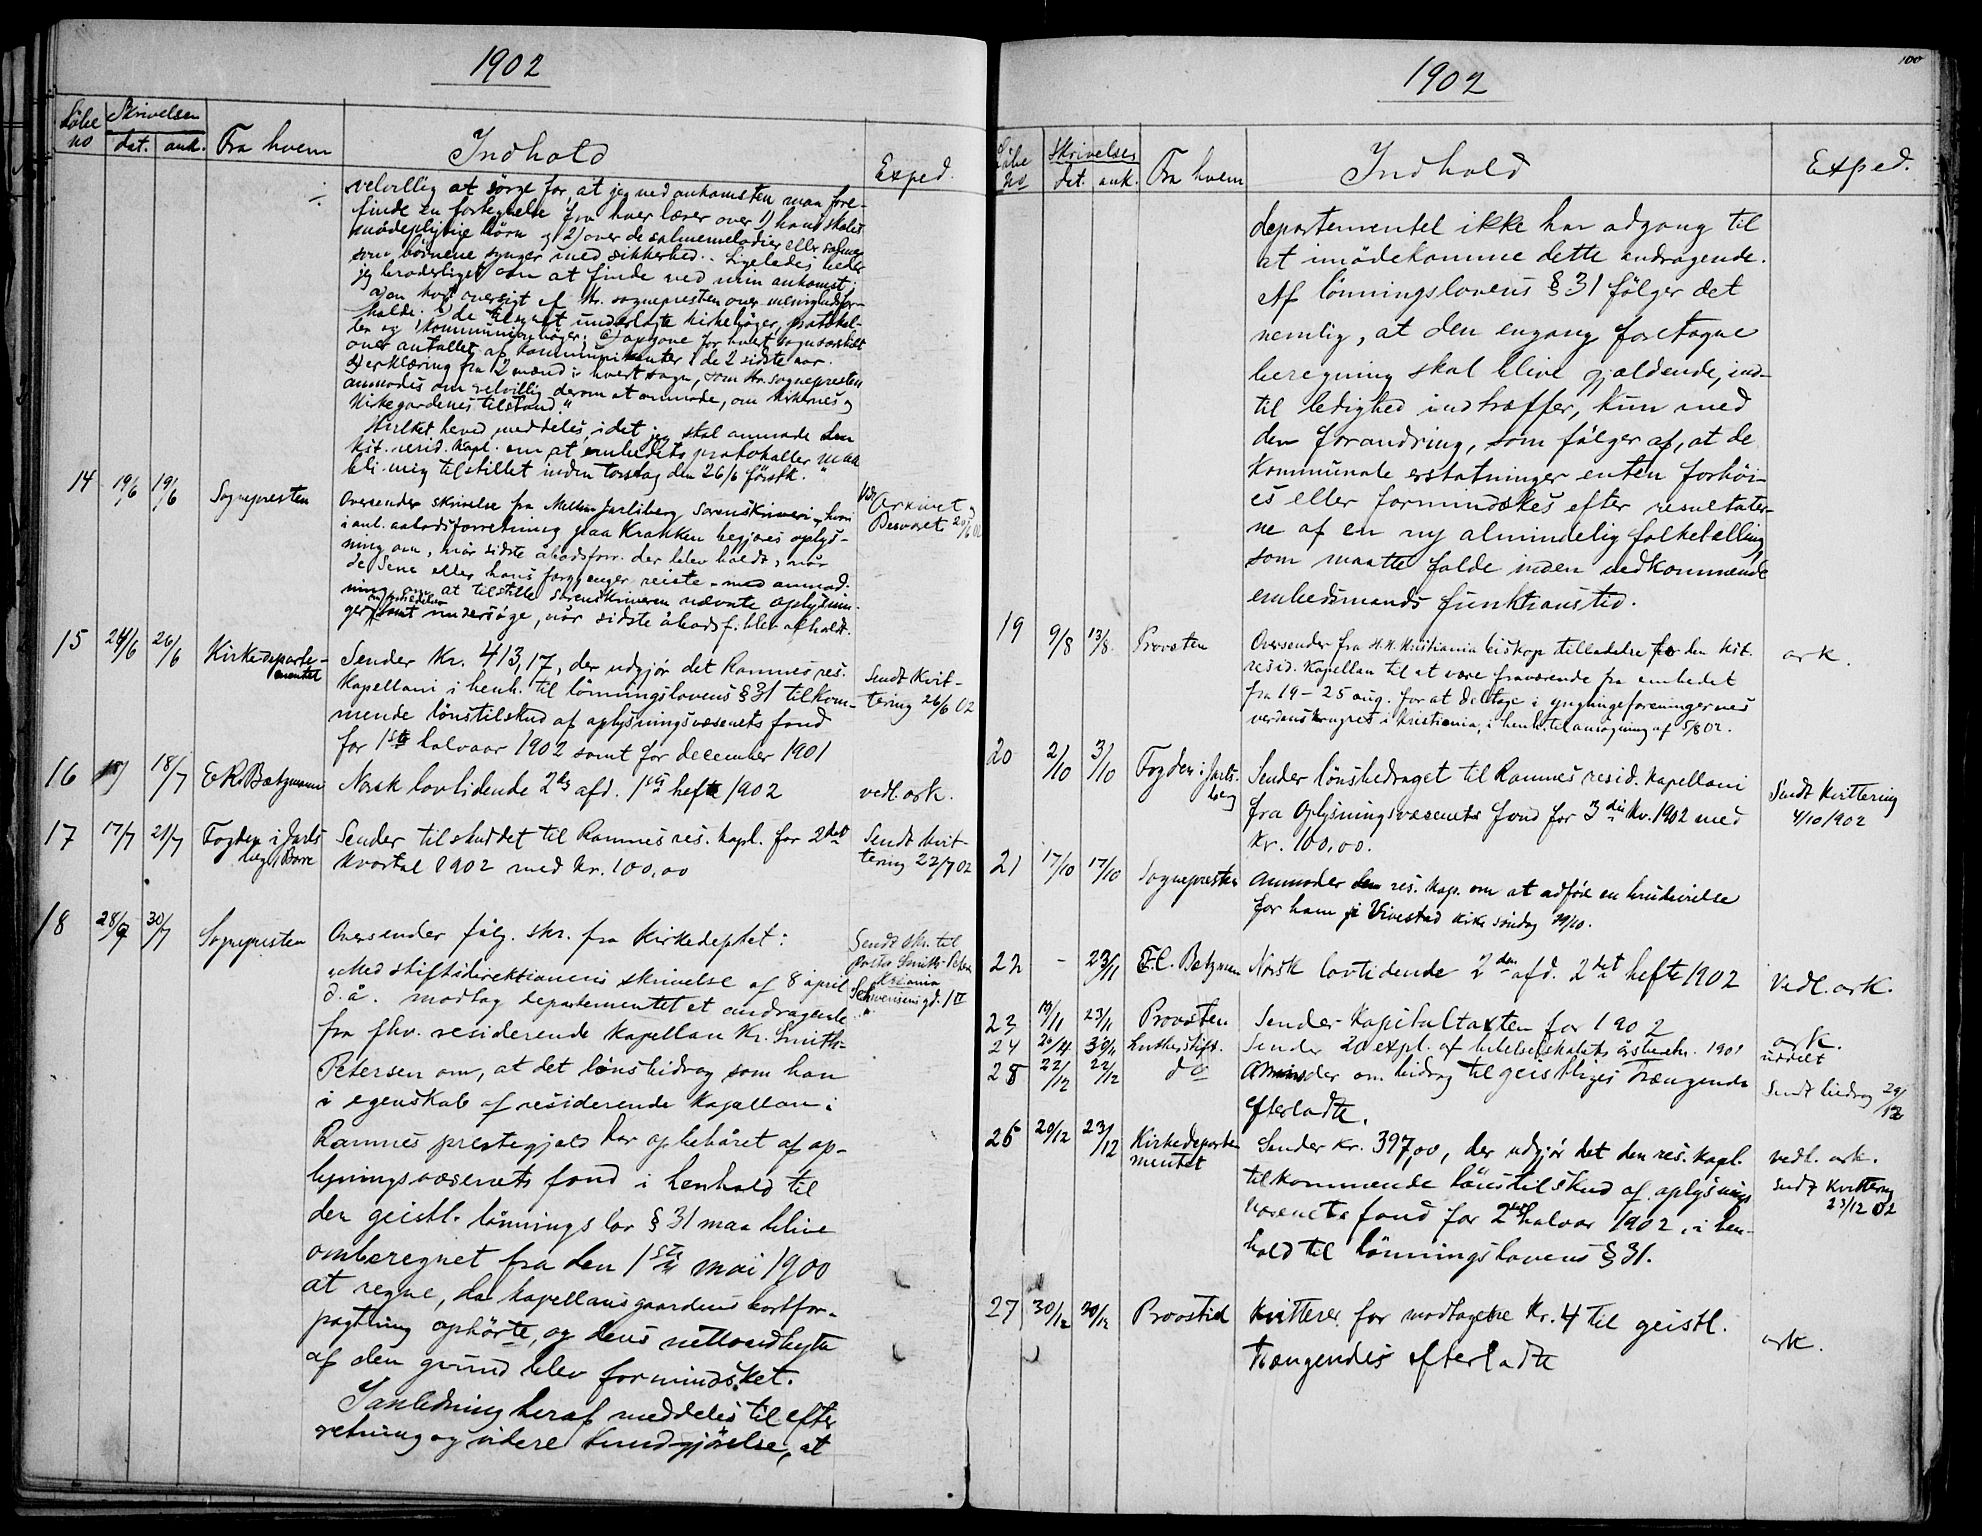 1902
Løbe no | Skrivelsen dat. | ank. | Fra hvem | Indhold | Exped.
÷ velvillig at sørge for, at jeg ved ankomsten maa fore-
finde en fortegnelse fra hver lærer over 1) hans skoles
mødepligtige børn og 2) over de salmemelodier eller salmer
som børnene synger med sikkerhed. Ligeledes beder
jeg broderligst om at finde ved min ankomst:
a) en kort oversigt af Hr. sognepresten over menighedsfor-
holde. b) de tilsynet underlagte kirkebøger, protokol-
ler og kommunionbøger; c) opgave for hvert sogn særskilt
over antallet af kommunikanter i de 2 sidste aar.
d) erklæring fra 2 mænd i hvert sogn, som Hr. sognepresten
anmodes om velvillig derom at anmode, om kirkernes og
kirkegaardenes tilstand."
Hvilket herved meddeles, idet jeg skal anmode den
kst. resid. kapl. om at embedets protokoller maa
bli mig tilstillet inden torsdag den 26/6 førstk. "
14 | 19/6 | 19/6 | Sognepresten | Oversender skrivelse fra Mellem Jarlsberg Sorenskriveri, hvori
i anl. aabodsforretning paa Krakken begjæres oplys-
ning om, når sidste åbodsforr. der blev holdt, når
de Sene eller hans forgjænger reiste – med anmod-
ning om at tilstille Sorenskriveren nævnte oplysnin-
ger, samt undersøge, når sidste åbodsf. blev afholdt. | Arkivet og
Besvaret 20/6 02
15 | 24/6 | 26/6 | Kirkedeparte-
mentet | Sender Kr. 413,17, der udgjør det Ramnes res.
kapellani i henh. til lønningslovens § 31 tilkom-
mende lønstilskud af oplysningsvæsenets fond
for 1ste halvaar 1902 samt for december 1901 | Sendt kvit-
tering 26/6 02
16 | 18/7 | Betzmann | Norsk lovtidende 2den afd. 1ste hefte 1902 | vedl. ark.
17 | 17/7 | 21/7 | Fogden i Jarls-
berg | Sender tilskuddet til Ramnes res. kapl. for 2det
kvartal 1902 med Kr. 100,00 | Sendt kvit-
tering 22/7 02
18 | 28/7 | 30/7 | Sognepresten | Oversender følg. skr. fra Kirkedeptet: | Sendt skr. til
Pastor Smith-Petersen
Kristiania
Schwensens gd. 1 IV
"Med stiftsdirektionens skrivelse af 8 april
d. å. modtog departementet et andragende
fra fhv. residerende kapellan Kr. Smith-
Petersen om, at det lønsbidrag som han
i egenskab af residerende kapellan i
Ramnes prestegjeld har oppebåret af op-
lysningsvæsenets fond i henhold til
den geistl. lønningslov § 31 maa blive
omberegnet fra den 1ste mai 1900
at regne, da kapellansgaardens bortfor-
pagtning ophørte, og dens nettoudbytte
af den grund blev formindsket.
I anledning heraf meddeles til efter-
retning og videre kundgjørelse, at
1902
100
Løbe no | Skrivelses dat. | ank. | Fra hvem | Indhold | Exped.
departementet ikke har adgang til
at imødekomme dette andragende.
Af lønningslovens § 31 følger det
nemlig, at den engang foretagne
beregning skal blive gjældende, ind-
til ledighed indtræffer, kun med
den forandring, som følger af, at de
kommunale erstatninger enten forhøi-
es eller formindskes efter resultater-
ne af en ny almindelig folketælling,
som maatte falde inden vedkommende
embedsmands funktionstid.
19 | 9/8 | 13/8 | Provsten | Oversender fra H.H. Kristiania biskop tilladelse for den kst.
resid. kapellan til at være fraværende fra embedet
fra 19 – 25 aug. for at deltage i ynglingeforeningernes
verdenskongres i Kristiania, i henh. til ansøgning af 5/8 02. | ark.
20 | 2/10 | 3/10 | Fogden i Jarls-
berg | Sender lønsbedraget til Ramnes resid. kapellani
fra Oplysningsvæsenets fond for 3die kv. 1902 med
Kr. 100,00. | Sendt kvittering
4/10 1902
21 | 17/10 | 17/10 | Sognepresten | Anmoder den res. kap. om at udføre en brudevielse
for ham i Vivestad kirke søndag 19/10.
22 | – | 23/11 | Betzmann | Norsk lovtidende 2den afd. 2det hefte 1902 | Vedl. ark.
23 | 19/11 | 23/11 | Provsten | Sender Kapitaltaxten for 1902 | ark.
24 | 30/11 | Lutherstift. | Sender 20 expl. af bibelselskabets årsberetn. 1901 | uddelt
25 | 22/12 | 22/12 | do | Anmoder om bidrag til geistliges trængende
efterladte. | Sendt bidrag 29/12
26 | 20/12 | 23/12 | Kirkedeparte-
mentet | Sender Kr. 397,00, der udgjør det den res. kapl.
tilkommende lønstilskud af oplysnings-
væsenets fond for 2det halvår 1902, i hen-
hold til lønningslovens § 31. | vedl. ark.
Sendt kvittering
23/12 02
27 | 30/12 | 30/12 | Provstid | Kvitterer for modtagelse Kr. 4 til geistl.
trængendes efterladte | ark.